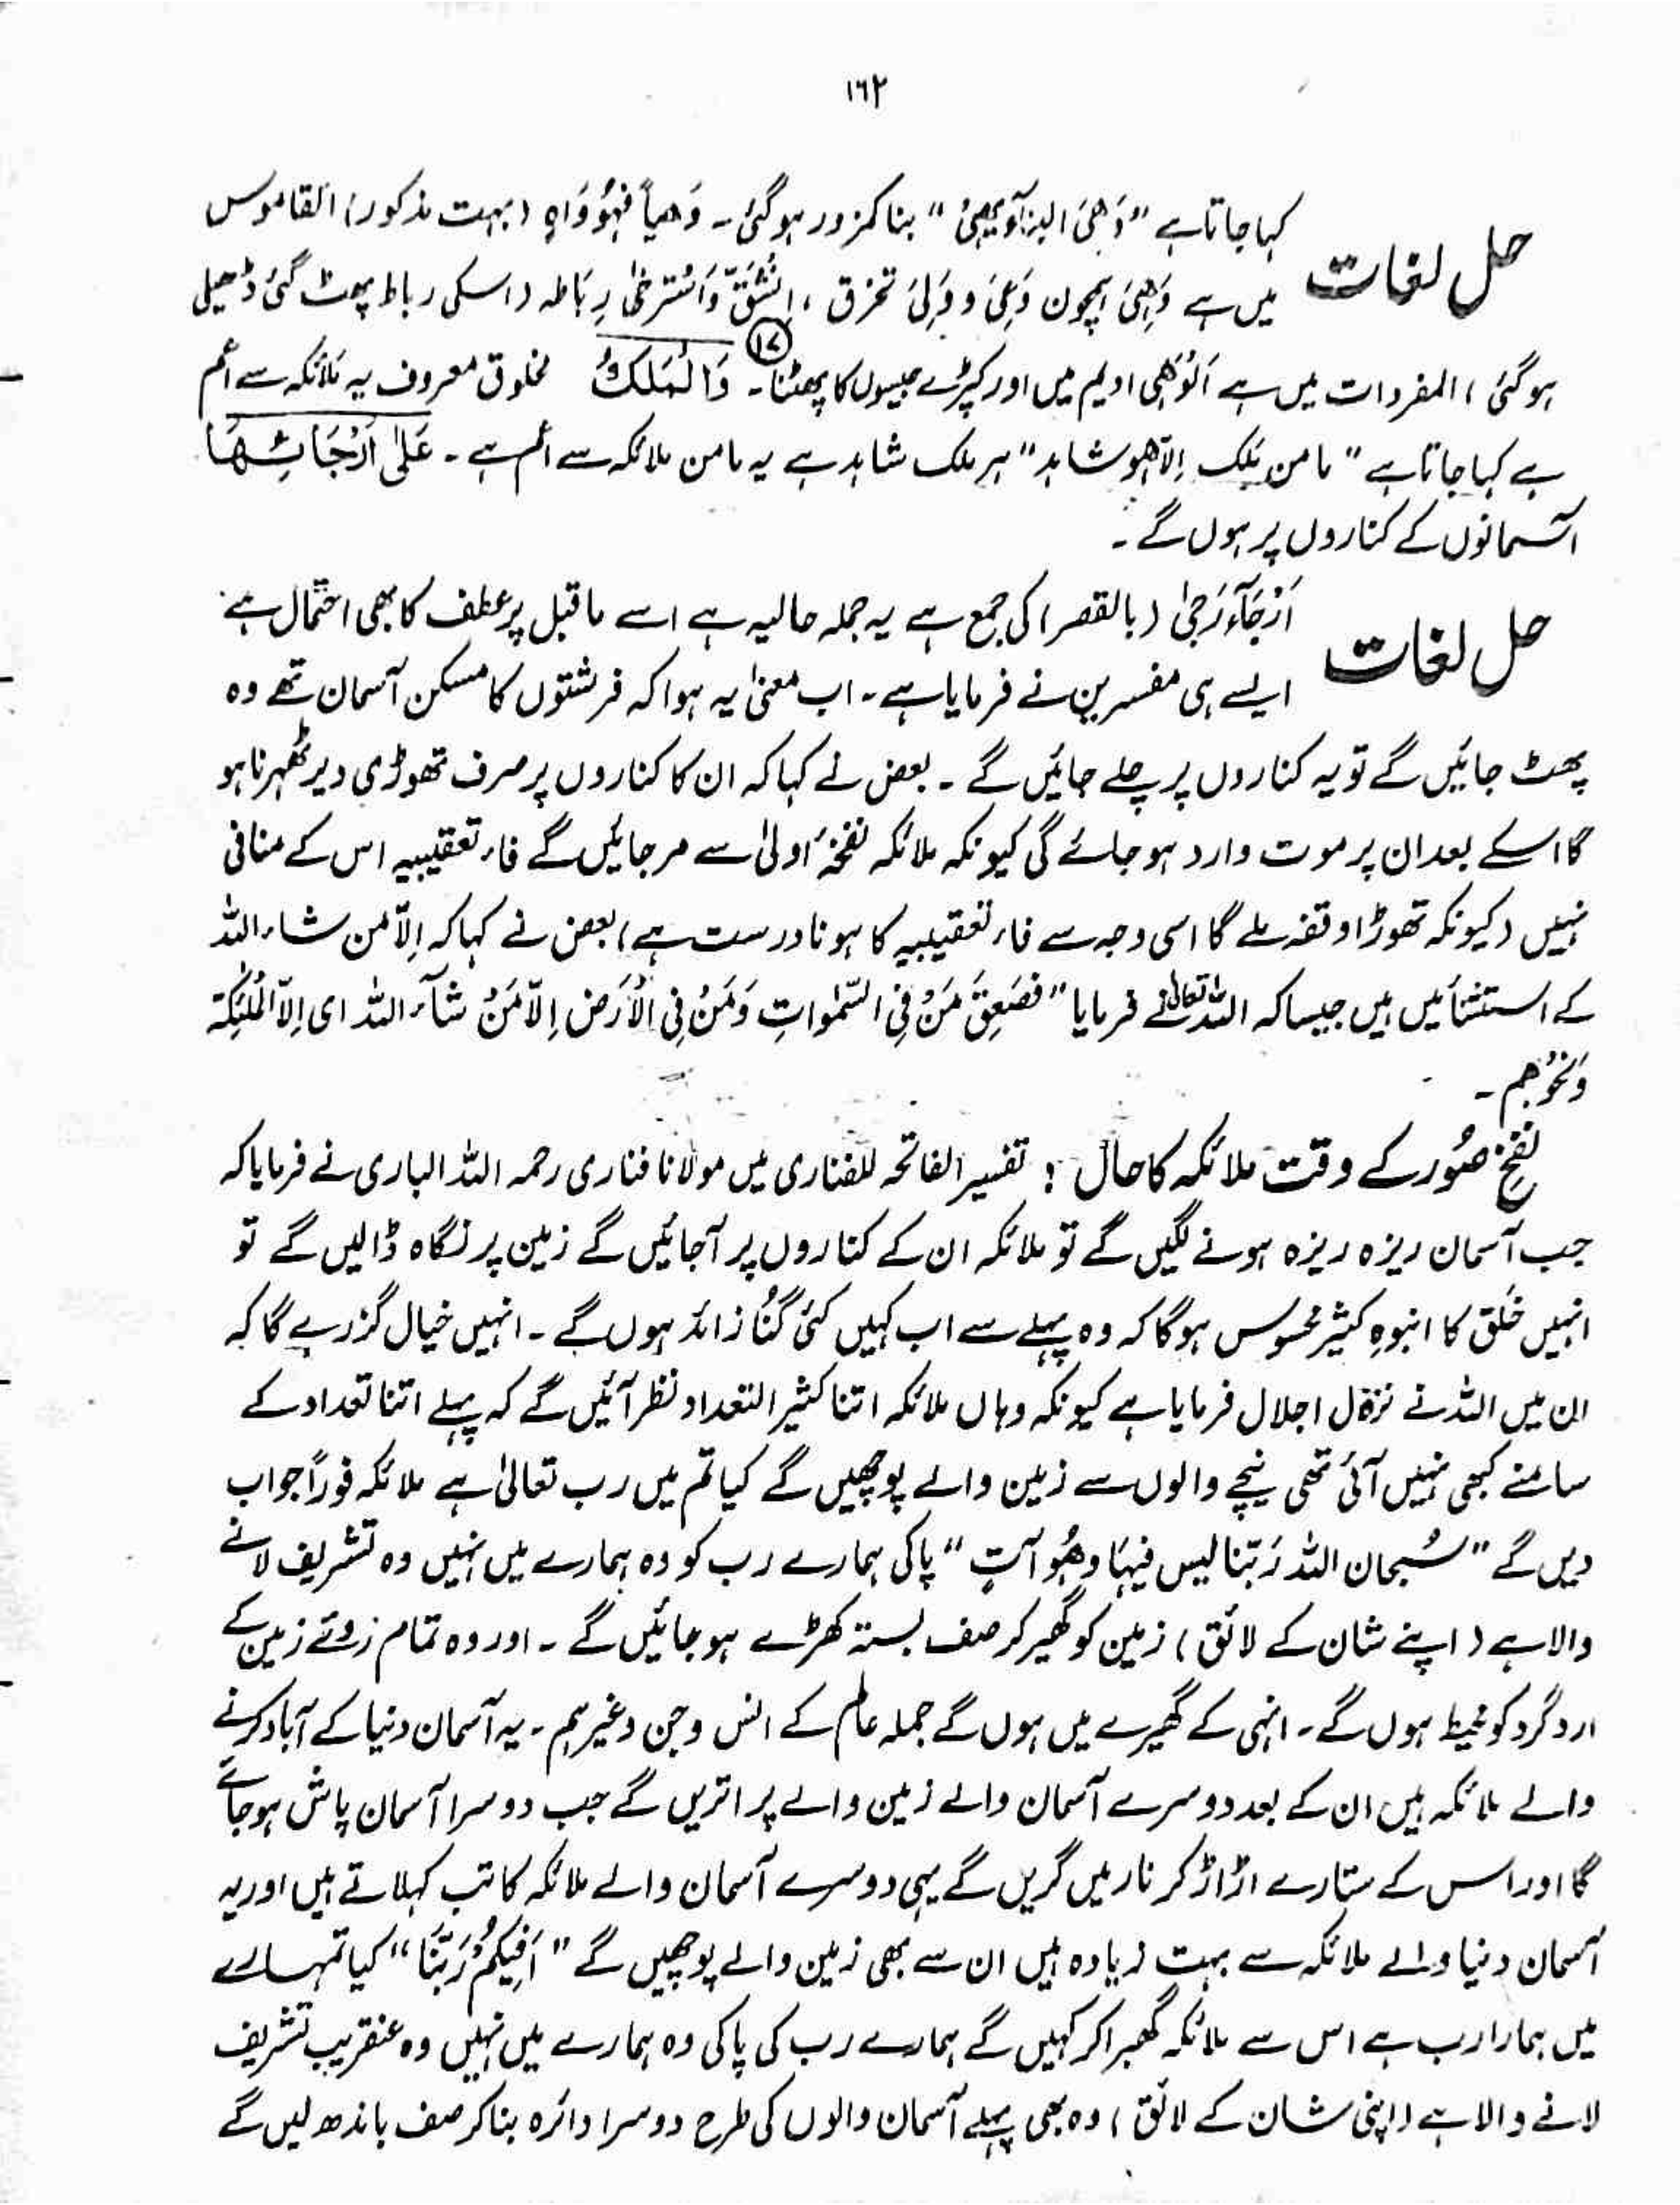 ۱۶۲
حل لغات کہا جاتا ہے "وَھَی البناَءیھِیْ" بنا کمزور ہوگئی۔ وَھیاً فہُوَ وَاہٍ (بہت مذکور) القاموس
میں ہے وَھِیَ ہمچون وَعٰی و وَلِیَ تخرق، اِنْشَقَّ وَاسْتَرخٰی رِبَاطہ (اسکی رباط پھٹ گئی ڈھیلی
ہوگئی) المفردات میں ہے اَلوَھْی ادیم میں اور کپڑے جیسوں کا پھٹنا۔ ⑰ وَالْمَلَکُ مخلوق معروف یہ مَلائکہ سے اعم
ہے کہا جاتا ہے "مامن مَلک اِلّا ھو شاہد" ہر ملک شاہد ہے یہ مامن ملائکہ سے اعم ہے۔ عَلٰی اَرْجَائِھَا
آسمانوں کے کناروں پر ہوں گے۔
حل لغات اَرْجَآءرَجیٰ (بالقصر) کی جمع ہے یہ جملہ حالیہ ہے اسے ماقبل پر عطف کا بھی احتمال ہے
ایسے ہی مفسرین نے فرمایا ہے۔ اب معنیٰ یہ ہوا کہ فرشتوں کا مسکن آسمان تھے وہ
پھٹ جائیں گے تو یہ کناروں پر چلے جائیں گے۔ بعض نے کہا کہ ان کا کناروں پر صرف تھوڑی دیر ٹھہرنا ہو
گا اسکے بعد ان پر موت وارد ہوجائے گی کیونکہ ملائکہ نفخۂ اولیٰ سے مر جائیں گے فاء تعقیبیہ اس کے منافی
نہیں (کیونکہ تھوڑا وقفہ ملے گا اسی وجہ سے فاء تعقیبیہ کا ہونا درست ہے) بعض نے کہا کہ اِلّا من شاء اللہ
کے استثنأمیں ہیں جیسا کہ اللہ تعالیٰ نے فرمایا "فَصَعِقَ مَنْ فِی السَّمٰواتِ وَمَنْ فِی الْاَرَضِ اِلّا مَنْ شَآءَ اللہ ای اِلّا الْمَلٰئِکَۃ
وَنَحْوَھم۔
نفخِ صُور کے وقت ملائکہ کا حال : تفسیر الفاتحہ للفناری میں مولانا فناری رحمہ اللہ الباری نے فرمایا کہ
جب آسمان ریزہ ریزہ ہونے لگیں گے تو ملائکہ ان کے کناروں پر آجائیں گے زمین پر نگاہ ڈالیں گے تو
انہیں خَلق کا انبوہِ کثیر محسوس ہوگا کہ وہ پہلے سے اب کہیں کئی گُنا زائد ہوں گے۔ انہیں خیال گزرے گا کہ
ان میں اللہ نے نزول اجلال فرمایا ہے کیونکہ وہاں ملائکہ اتنا کثیر التعداد نظر آئیں گے کہ پہلے اتنا تعداد کے
سامنے کبھی نہیں آئی تھی نیچے والوں سے زمین والے پوچھیں گے کیا تم میں رب تعالیٰ ہے ملائکہ فوراً جواب
دیں گے "سُبحان اللہ رَبّنا لیس فیہا وھُو آتٍ" پاکی ہمارے رب کو وہ ہمارے میں نہیں وہ تشریف لانے
والا ہے (اپنے شان کے لائق) زمین کو گھیر کر صف بستہ کھڑے ہو جائیں گے۔ اور وہ تمام روئے زمین کے
اردگرد کو محیط ہوں گے۔ انہی کے گھیرے میں ہوں گے جملہ عالم کے انس وجن وغیرہم۔ یہ آسمان دنیا کے آباد کرنے
والے ملائکہ ہیں ان کے بعد دوسرے آسمان والے زمین والے پر اتریں گے جب دوسرا آسمان پاش ہوجائے
گا اور اس کے ستارے اڑ اڑ کر نار میں گریں گے یہی دوسرے آسمان والے ملائکہ کاتب کہلاتے ہیں اور یہ
آسمان دنیا والے ملائکہ سے بہت زیادہ ہیں ان سے بھی زمین والے پوچھیں گے "اَفِیکُمْ رَبّنَا" کیا تمہارے
میں ہمارا رب ہے اس سے ملائکہ گھبرا کر کہیں گے ہمارے رب کی پاکی وہ ہمارے میں نہیں وہ عنقریب تشریف
لانے والا ہے (اپنی شان کے لائق) وہ بھی پہلے آسمان والوں کی طرح دوسرا دائرہ بنا کر صف باندھ لیں گے